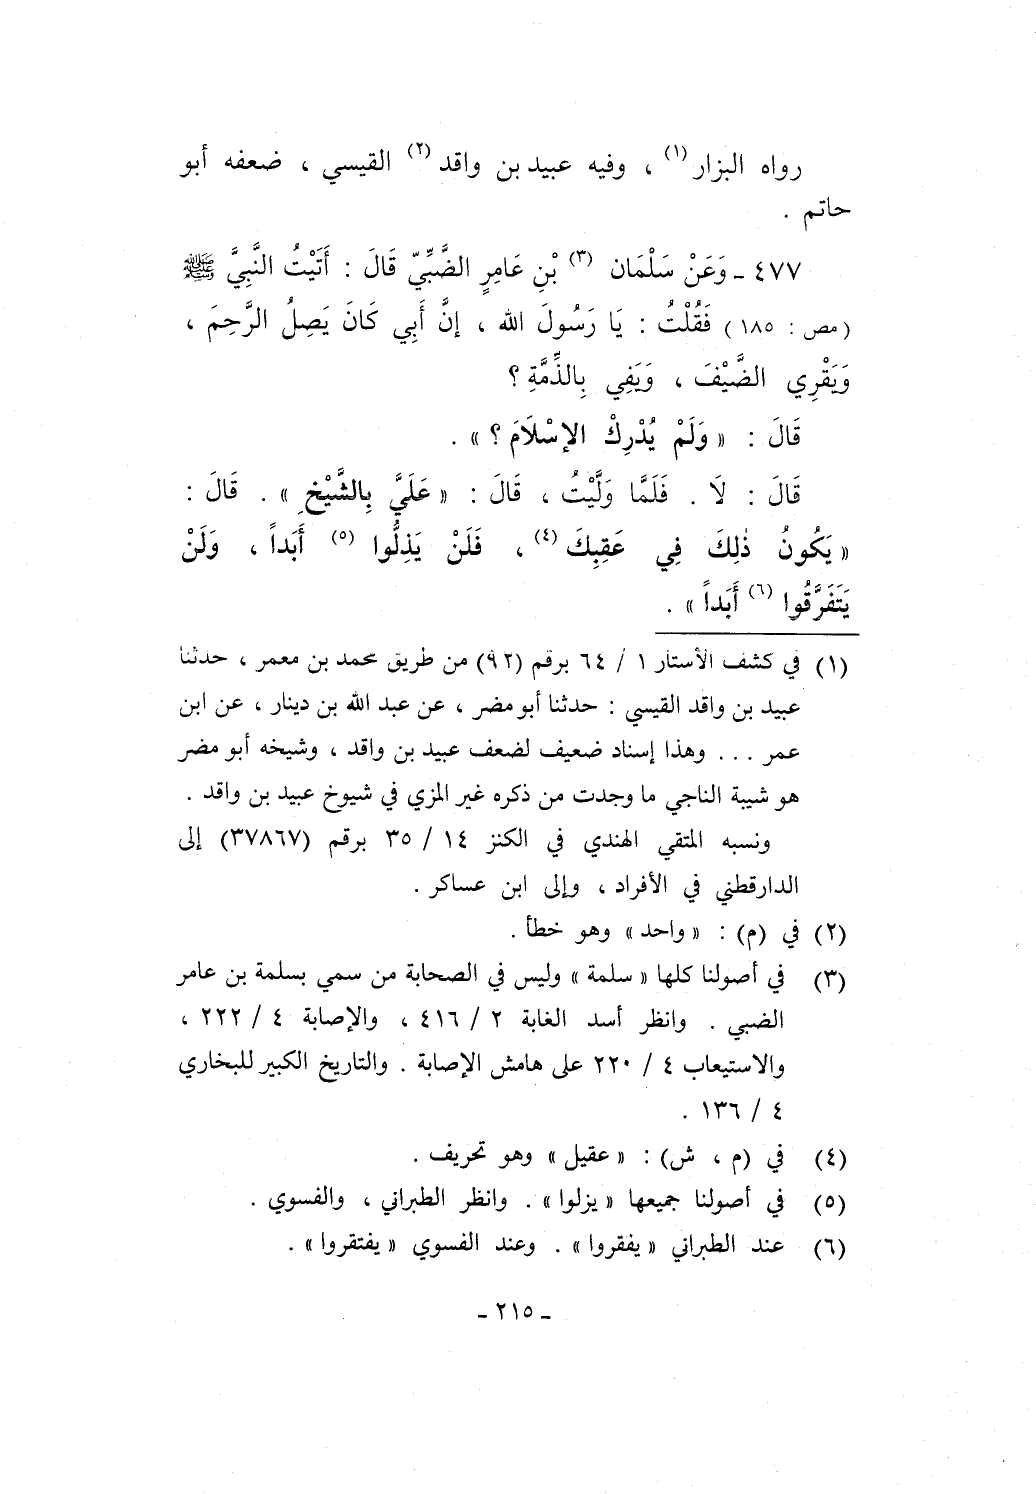 رواه البزار (١) ، وفيه عبيد بن واقد (٢) القيسي ، ضعفه أبو
حاتم .
٤٧٧ ـ وَعَنْ سَلْمَان (٣) بْنِ عَامِرٍ الضَّبِّيِّ قَالَ : أَتَيْتُ النَّبِيَّ ﷺ
( مص : ١٨٥ ) فَقُلْتُ : يَا رَسُولَ الله ، إنَّ أَبي كَانَ يَصِلُ الرَّحِمَ ،
وَيَقْرِي الضَّيْفَ ، وَيَفِي بِالذِّمَّةِ ؟
قَالَ : « وَلَمْ يُدْرِكْ الإسْلَامَ ؟ » .
قَالَ : لَا . فَلَمَّا وَلَّيْتُ ، قَالَ : « عَلَيَّ بِالشَّيْخِ » . قَالَ :
« يَكُونُ ذٰلِكَ فِي عَقِبِكَ (٤) ، فَلَنْ يَذِلُّوا (٥) أَبَداً ، وَلَنْ
يَتَفَرَّقُوا (٦) أَبَداً » .
(١) في كشف الأستار ١ / ٦٤ برقم (٩٢) من طريق محمد بن معمر ، حدثنا
عبيد بن واقد القيسي : حدثنا أبو مضر ، عن عبد الله بن دينار ، عن ابن
عمر ... وهذا إسناد ضعيف لضعف عبيد بن واقد ، وشيخه أبو مضر
هو شيبة الناجي ما وجدت من ذكره غير المزي في شيوخ عبيد بن واقد .
ونسبه المتقي الهندي في الكنز ١٤ / ٣٥ برقم (٣٧٨٦٧) إلى
الدارقطني في الأفراد ، وإلى ابن عساكر .
(٢) في (م) : « واحد » وهو خطأ .
(٣) في أصولنا كلها « سلمة » وليس في الصحابة من سمي بسلمة بن عامر
الضبي . وانظر أسد الغابة ٢ / ٤١٦ ، والإصابة ٤ / ٢٢٢ ،
والاستيعاب ٤ / ٢٢٠ على هامش الإصابة . والتاريخ الكبير للبخاري
٤ / ١٣٦ .
(٤) في (م ، ش) : « عقيل » وهو تحريف .
(٥) في أصولنا جميعها « يزلوا » . وانظر الطبراني ، والفسوي .
(٦) عند الطبراني « يفقروا » . وعند الفسوي « يفتقروا » .
ـ ٢١٥ ـ